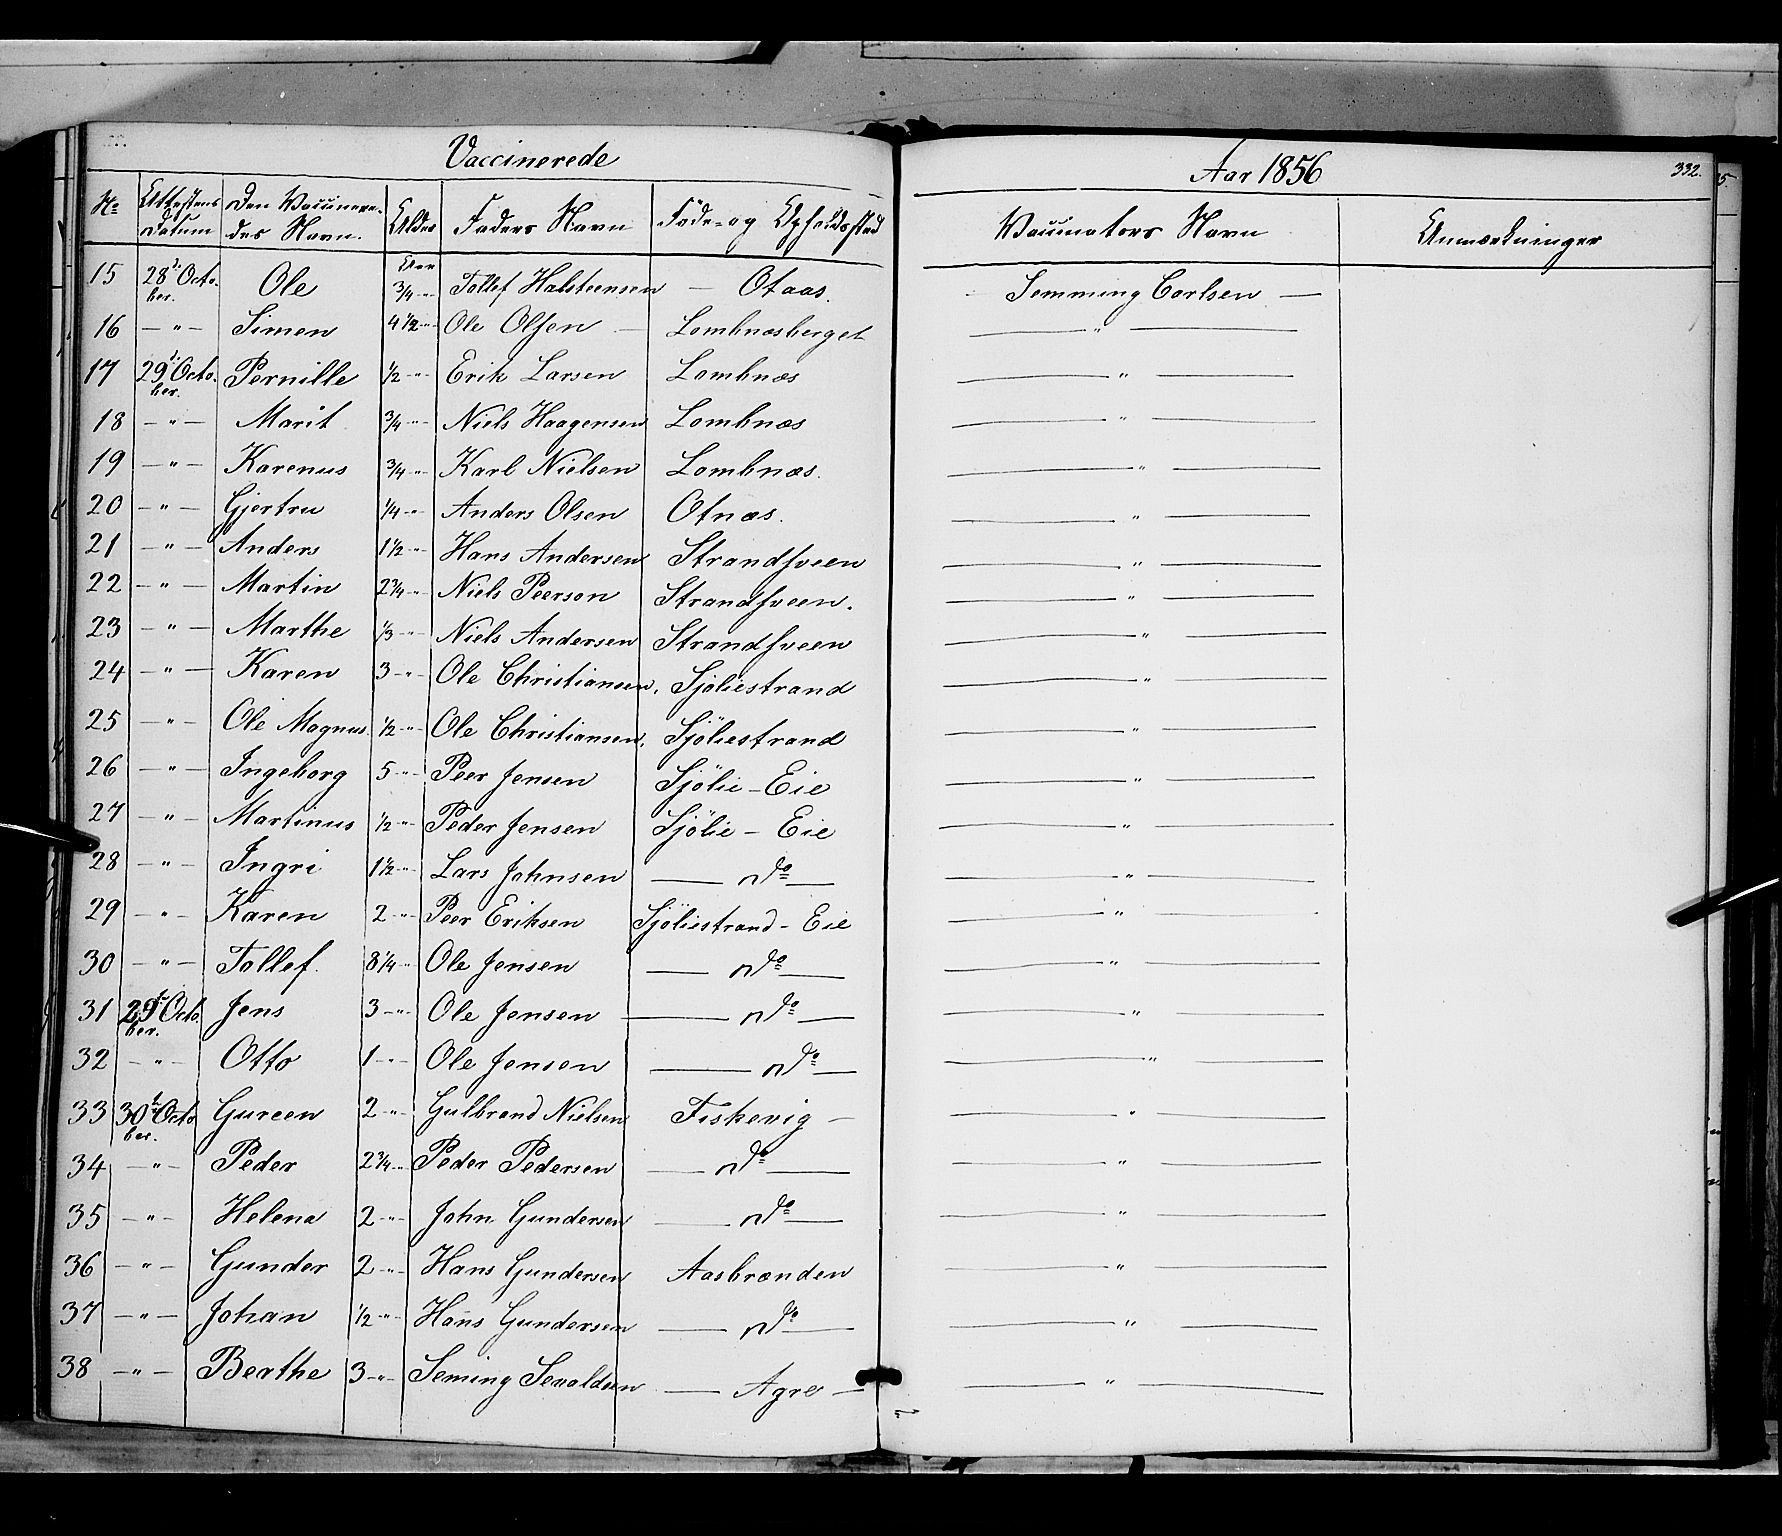 Vaccinerede
Aar 1856
332.
No Attestens Datum Den Vaccinere- des Navn. Alder Faders Navn Føde- og Opholdssted Vaccinators Navn Anmærkninger
15 28de Octo- ber. Ole Aar 3/4 -"- Tollef Halsteensen — Otaas. Semming Carlsen —
16 — " — Simen 4 1/2 -"- Ole Olsen — Lombnæsberget — " —
17 29de Octo- ber. Pernille 1/2 -"- Erik Larsen Lombnæs — " —
18 — " — Marit 3/4 -"- Niels Haagensen Lombnæs — " —
19 — " — Karenus 3/4 -"- Karl Nielsen Lombnæs. — " —
20 — " — Gjertru 1/4 -"- Anders Olsen Otnæs. — " —
21 — " — Anders 1 1/2 -"- Hans Andersen Strandsveen — " —
22 — " — Martin 2 3/4 -"- Niels Peerson Strandsveen. — " —
23 — " — Marthe 1/3 -"- Niels Andersen Strandsveen — " —
24 — " — Karen 3 -"- Ole Christiansen, Sjøliestrand — " —
25 — " — Ole Magnus 1/2 -"- Ole Christiansen, Sjöliestrand — " —
26 — " — Ingeborg 5 -"- Peer Jensen Sjölie - Eie — " —
27 — " — Martinus 1/2 -"- Peder Jensen Sjölie - Eie — " —
28 — " — Ingri 1 1/2 -"- Lars Johnsen — do — — " —
29 — " — Karen 2 -"- Peer Eriksen Sjöliestrand - Eie — " —
30 — " — Tollef. 8 1/4 -"- Ole Jensen — do — — " —
31 29de Octo ber. Jens 3 -"- Ole Jensen — do — — " —
32 — " — Otto 1 -"- Ole Jensen — do — — " —
33 30te Octo ber. Gureen 2 -"- Gulbrand Nielsen Fiskevig — — " —
34 — " — Peder 2 3/4 -"- Peder Pedersen — do — — " —
35 — " — Helena 2 -"- John Gundersen — do — — " —
36 — " — Gunder 2 -"- Hans Gundersen Aasbrænden — " —
37 — " — Johan 1/2 -"- Hans Gundersen — do — — " —
38 — " — Berthe 3 -"- Seming — Agre — — " —